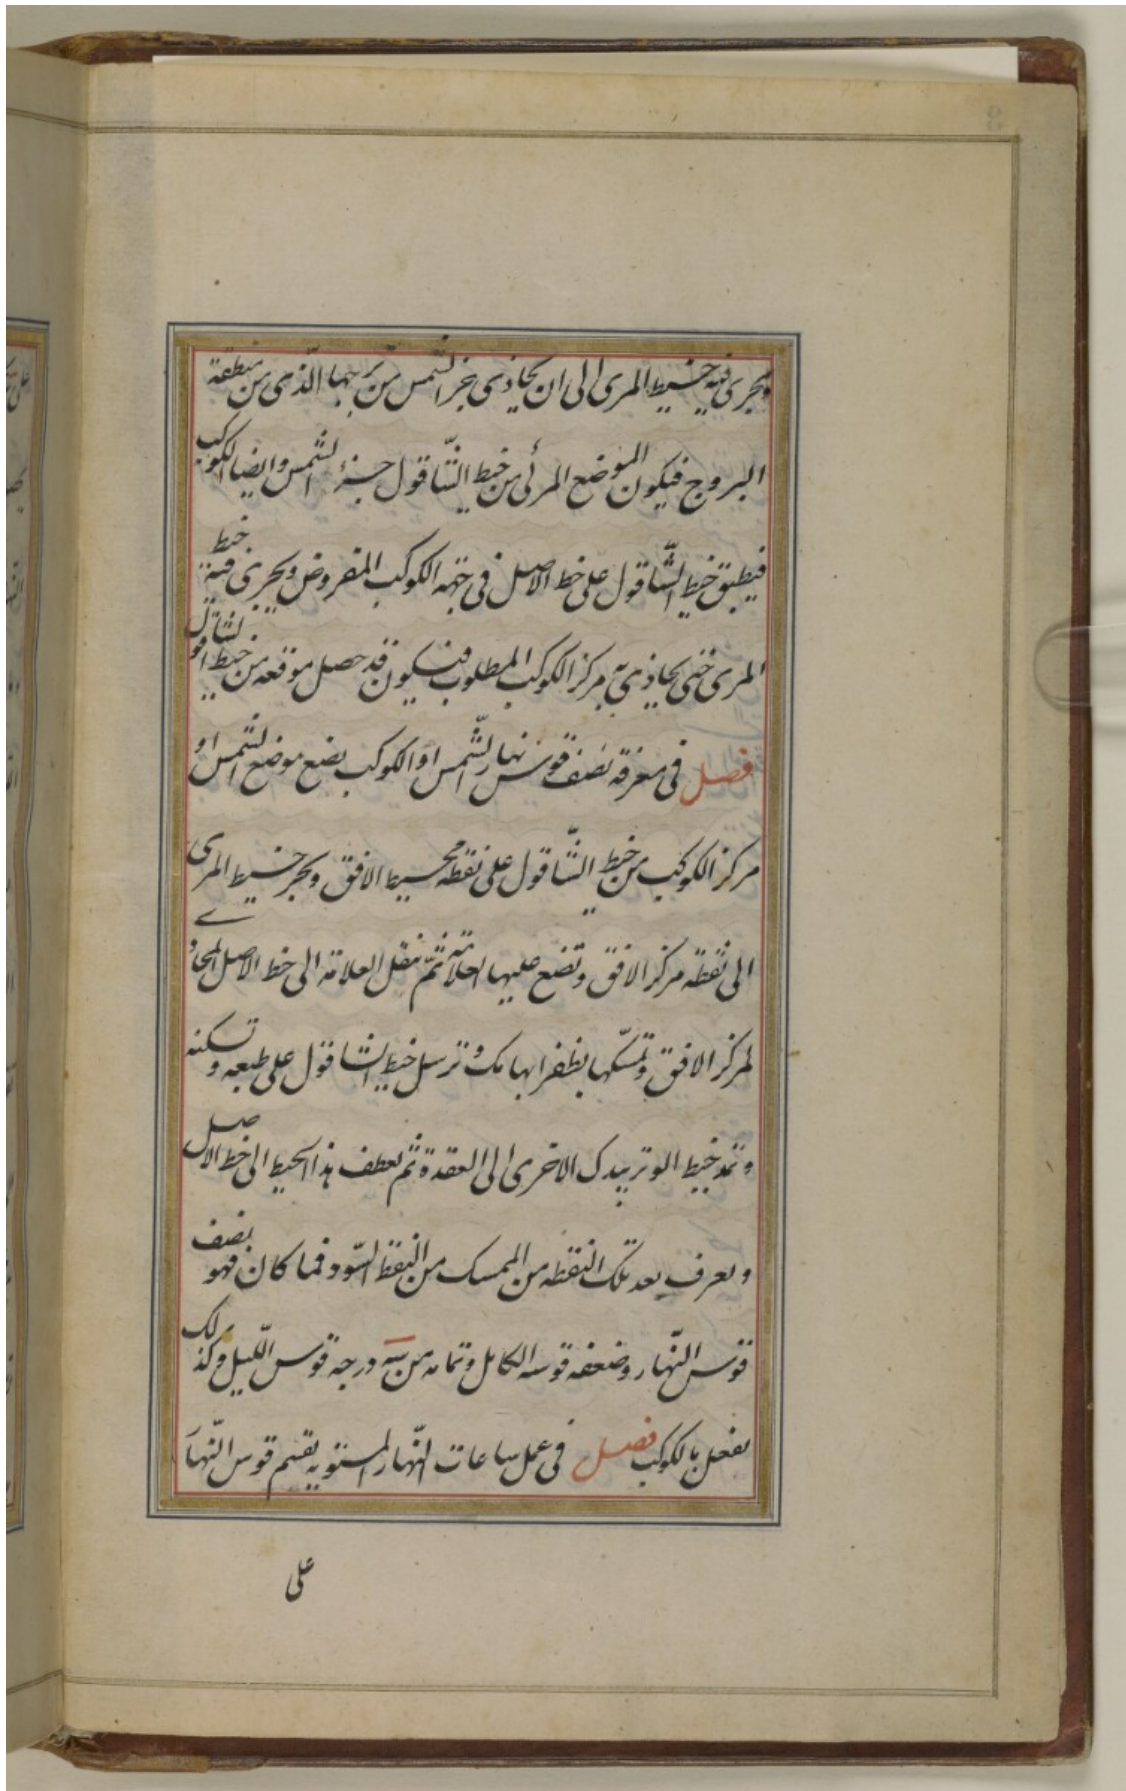 ويجرى فيه خيط المرى الى ان يحاذى جزء الشمس من برجها الذى من منطقة
البروج فيكون الموضع المرئى من خيط الشاقول جزء الشمس وايضا الكوكب
فيطبق خيط الشاقول على خط الاصل فى جهة الكوكب المفروض ويجرى فيه خيط
المرى حتى يحاذى به مركز الكوكب المطلوب فيكون قد حصل موقعه من خيط الشاقول
فصل فى معرفة نصف قوس نهار الشمس او الكوكب يضع موضع الشمس او
مركز الكوكب من خيط الشاقول على نقطة محيط الافق ويجر خيط المرى
الى نقطة مركز الافق وتضع عليها العلامة ثم تنقل العلامة الى خط الاصل المحاذى
لمركز الافق وتمسكها بظفر ابهامك وترسل خيط الشاقول على طبعه وتسكنه
وتمد خيط الوتر بيدك الاخرى الى العقدة ثم يعطف هذا الخيط الى خط الاصل
ويعرف بعد تلك النقطة من الممسك من النقط السود فما كان فهو نصف
قوس النهار وضعفه قوسه الكامل وتمامه من شس درجه قوس الليل وكذلك
يفعل بالكوكب فصل فى عمل ساعات النهار المستويه يقسم قوس النهار
على